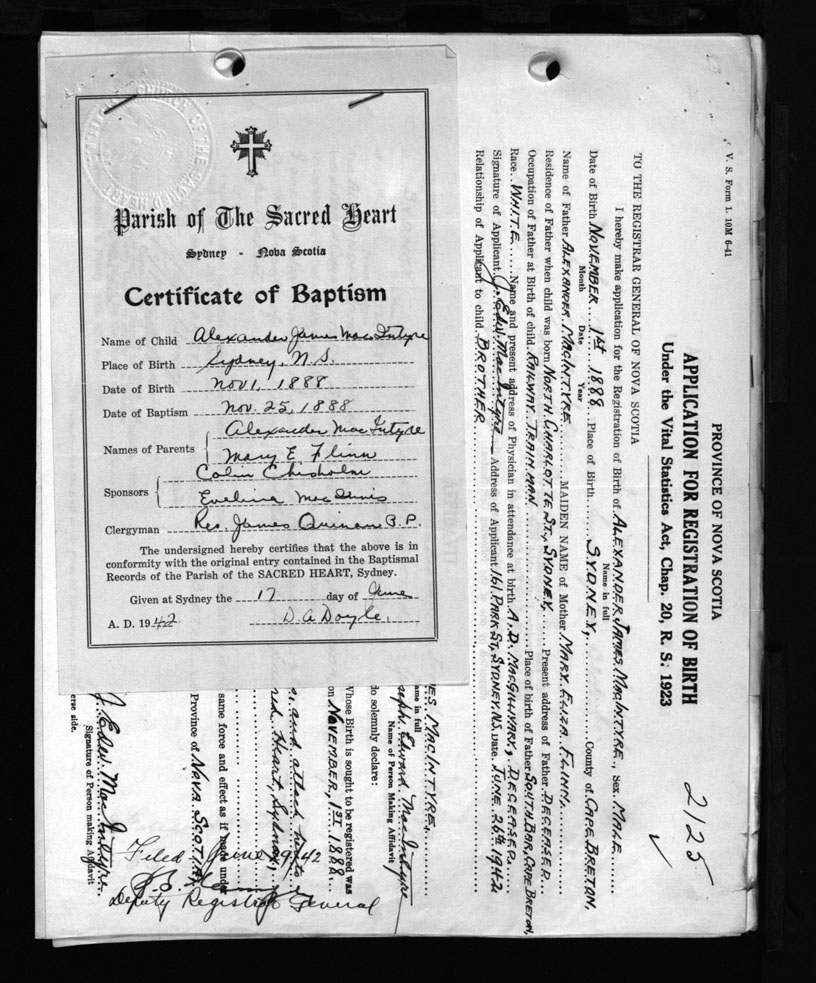 CHURCH OF THE SACRED HEART
Parish of The Sacred Heart
Sydney - Nova Scotia
Certificate of Baptism
Name of Child Alexander James MacIntyre
Place of Birth Sydney, N.S.
Date of Birth Nov 1, 1888
Date of Baptism Nov. 25, 1888
Names of Parents { Alexander MacIntyre
Mary E Flinn
Sponsors { Colin Chisholm
Evelina MacInnis
Clergyman Rev. James Quinan P.P.
The undersigned hereby certifies that the above is in
conformity with the original entry contained in the Baptismal
Records of the Parish of the SACRED HEART, Sydney.
Given at Sydney the 17 day of June
A. D. 1942 D. A Doyle.
V. S. Form 1. 10M 6-41
PROVINCE OF NOVA SCOTIA
APPLICATION FOR REGISTRATION OF BIRTH
Under the Vital Statistics Act, Chap. 20, R. S. 1923
2125
TO THE REGISTRAR GENERAL OF NOVA SCOTIA
I hereby make application for the Registration of Birth of ALEXANDER JAMES MACINTYRE, Sex MALE
Name in full
Date of Birth NOVEMBER 1st 1888 Place of Birth SYDNEY, County of CAPE BRETON,
Month Date Year
Name of Father ALEXANDER MACINTYRE MAIDEN NAME of Mother MARY ELIZA FLINN,
Residence of Father when child was born NORTH CHARLOTTE ST., SYDNEY, Present address of Father DECEASED
Occupation of Father at Birth of child RAILWAY TRAINMAN Place of birth of Father SOUTH BAR, CAPE BRETON,
Race WHITE Name and present address of Physician in attendance at birth A. D. MACGILLVARY, DECEASED
Signature of Applicant J. Edw. MacIntyre Address of Applicant 161 PARK ST., SYDNEY, N.S. Date JUNE 26th 1942
Relationship of Applicant to child BROTHER
MES MACINTYRE,
ame in full
seph Edward MacIntyre
Name of Person Making Affidavit
do solemnly declare:
Whose Birth is sought to be registered was
on NOVEMBER, 1st 1888
and attach hereto
red Heart, Sydney,
same force and effect as if made under
Province of NOVA SCOTIA
J. Edw. MacIntyre
Signature of Person making Affidavit
erse side.
Filed June 29/42
Deputy Registrar General